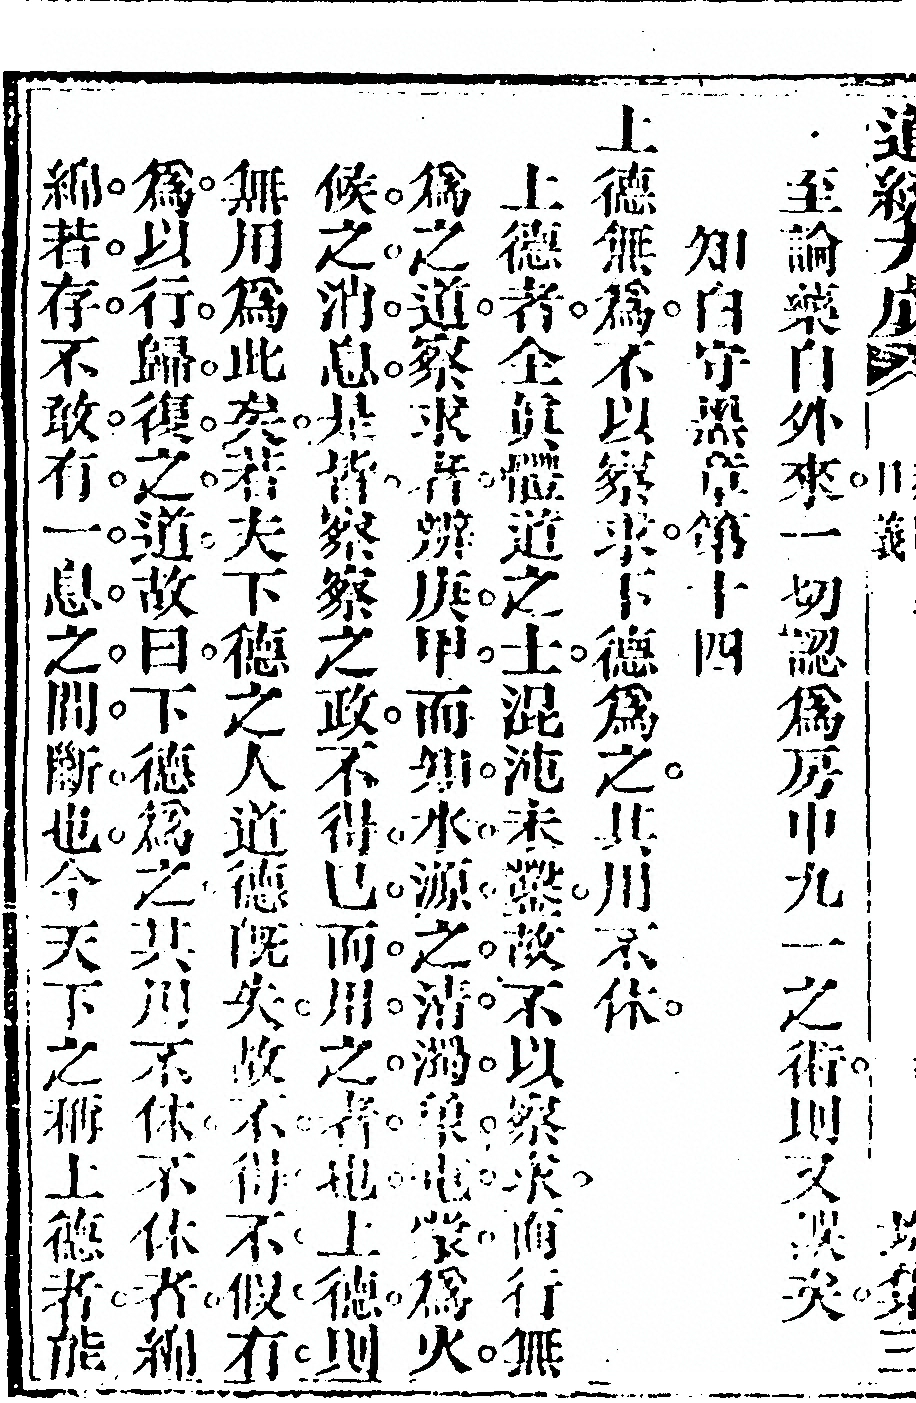 至論藥自外來一切認爲房中九一之術則又誤矣
知白守黑章第十四
上德無爲不以察求下德爲之其用不休
上德者全真體道之士混沌未鑿故不以察求而行無
爲之道察求者辨庚甲而知水源之清濁算屯蒙爲火
候之消息是皆察察之政不得已而用之者也上德則
無用爲此矣若夫下德之人道德旣失故不得不假有
爲以行歸復之道故曰下德爲之其用不休不休者綿
綿若存不敢有一息之間斷也今天下之稱上德者能